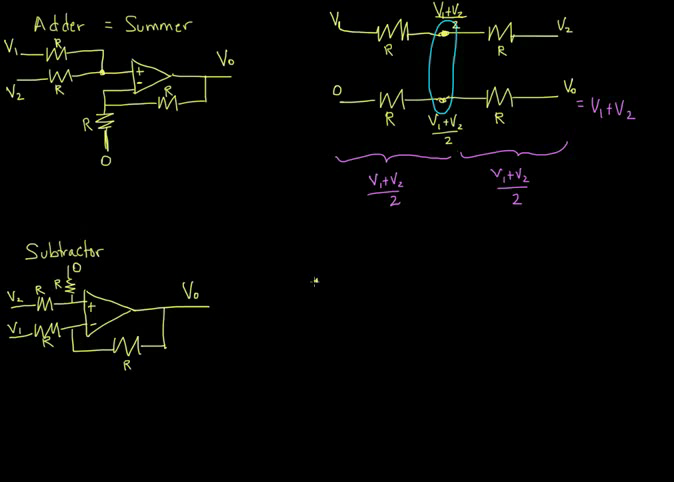 Adder = Summer
V₁
R
V₂
R
+
-
R
R
0
V₀
V₁
R
V₁+V₂/2
R
V₂
0
R
V₁+V₂/2
R
V₀
= V₁+V₂
V₁+V₂/2
V₁+V₂/2
Subtractor
0
R
V₂
R
V₁
R
+
-
R
V₀